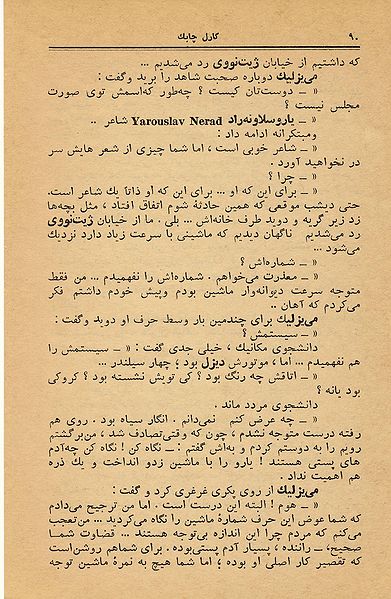 ۹۰ کارل چاپك
که داشتیم از خیابان ژیت‌نووی رد می‌شدیم ...
می‌یزلیك دوباره صحبت شاهد را برید وگفت :
« ــ دوست‌تان کیست ؟ چه‌طور که‌اسمش توی صورت
مجلس نیست ؟
« ــ یاروسلاونه‌راد Yarouslav Nerad شاعر ..
ومبتکرانه ادامه داد :
« ــ شاعر خوبی است ، اما شما چیزی از شعر هایش سر
در نخواهید آورد .
« ــ چرا ؟
« ــ برای این که او ... برای این که او ذاتاً یك شاعر است.
حتی دیشب موقعی که همین حادثهٔ شوم اتفاق افتاد ، مثل بچه‌ها
زد زیر گریه و دوید طرف خانه‌اش ... بلی . ما از خیابان ژیت‌نووی
رد می‌شدیم ناگهان دیدیم که ماشینی با سرعت زیاد دارد نزدیك
می‌شود ...
« ــ شماره‌اش ؟
« ــ معذرت می‌خواهم . شماره‌اش را نفهمیدم ... من فقط
متوجه سرعت دیوانه‌وار ماشین بودم وپیش خودم داشتم فکر
می‌کردم که آهان ..
می‌یزلیك برای چندمین بار وسط حرف او دوید وگفت :
« ــ سیستمش ؟
دانشجوی مکانیك ، خیلی جدی گفت : « ــ سیستمش را
هم نفهمیدم ... اما ، موتورش دیزل بود ؛ چهار سیلندر ...
« ــ اتاقش چه رنگ بود ؟ کی تویش نشسته بود ؟ کروکی
بود یانه ؟
دانشجوی مردد ماند .
« ــ چه عرض کنم نمی‌دانم . انگار سیاه بود . روی هم
رفته درست متوجه نشدم ، چون که وقتی‌تصادف شد ، من‌برگشتم
رویم را به دوستم کردم و به‌اش گفتم : ــ نگاه کن ! نگاه کن چه‌آدم
های پستی هستند ! یارو را با ماشین زدو انداخت و یك ذره
هم اهمیت نداد .
می‌یزلیك از روی پکری غرغری کرد و گفت :
« ــ هوم ! البته این درست است . اما من ترجیح می‌دادم
که شما عوض این حرف شمارهٔ ماشین را نگاه می‌کردید ... من‌تعجب
می‌کنم که مردم چرا این اندازه بی‌توجه هستند ... قضاوت شمــا
صحیح، ــ راننده ، بسیار آدم پستی‌بوده . برای شماهم روشن‌است
که تقصیر کار اصلی او بوده ؛ اما شما هیچ به نمرهٔ ماشین توجه